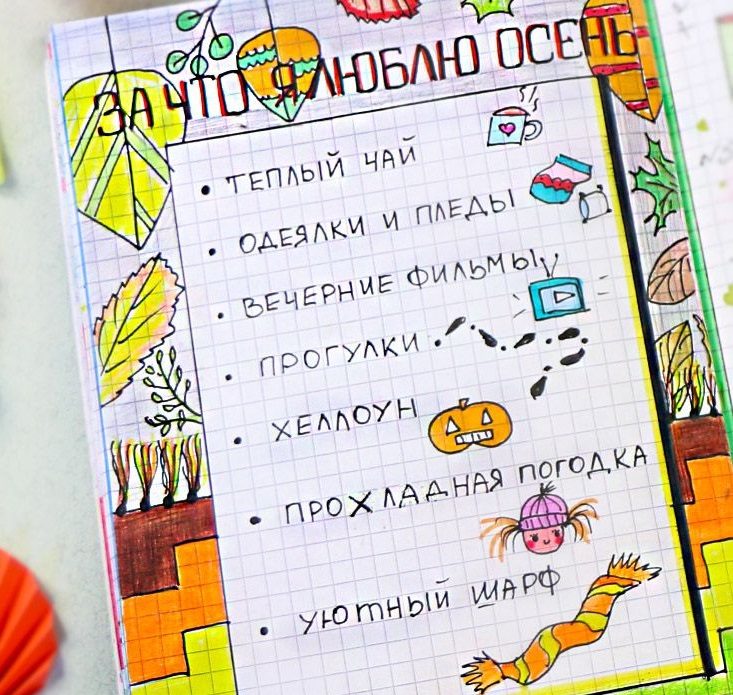 ЗА ЧТО Я ЛЮБЛЮ ОСЕНЬ
• ТЕПЛЫЙ ЧАЙ
• ОДЕЯЛКИ И ПЛЕДЫ
• ВЕЧЕРНИЕ ФИЛЬМЫ
• ПРОГУЛКИ
• ХЕЛЛОУН
• ПРОХЛАДНАЯ ПОГОДКА
• УЮТНЫЙ ШАРФ